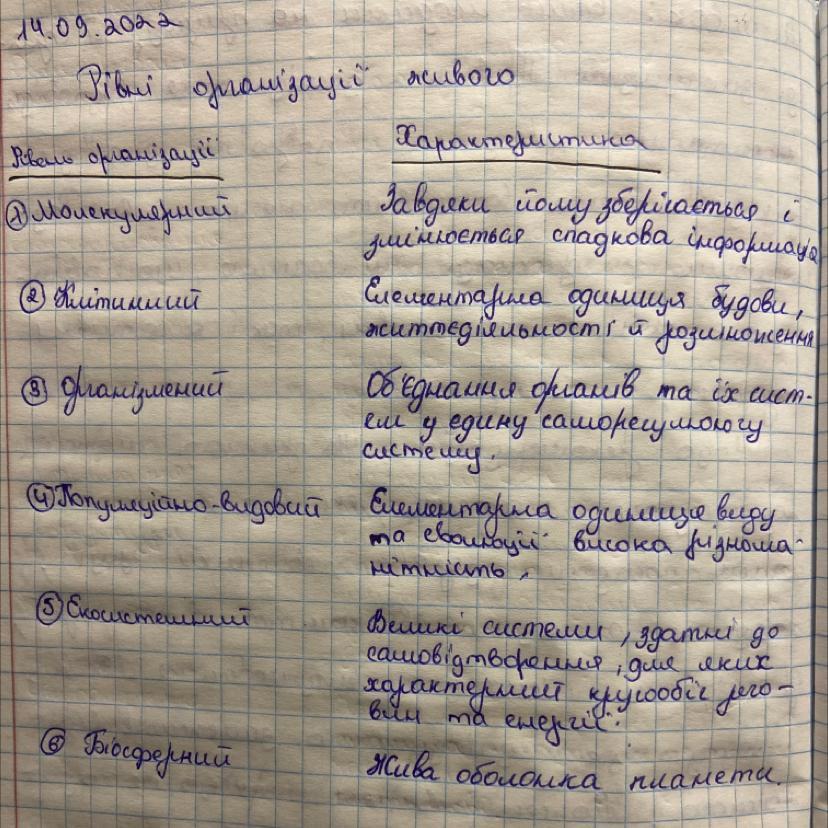 14.09.2022
Рівні організації живого
Рівень організації Характеристика
① Молекулярний Завдяки йому зберігається і
змінюється спадкова інформація
② Клітинний Елементарна одиниця будови,
життєдіяльності й розмноження
③ Організмений Об'єднання органів та їх сист-
ем у єдину саморегулюючу
систему.
④ Популяційно-видовий Елементарна одиниця виду
та еволюції висока різнома-
нітність,
⑤ Екосистемний Великі системи, здатні до
самовідтворення, для яких
характерний кругообіг речо-
вин та енергії.
⑥ Біосферний Жива оболонка планети.